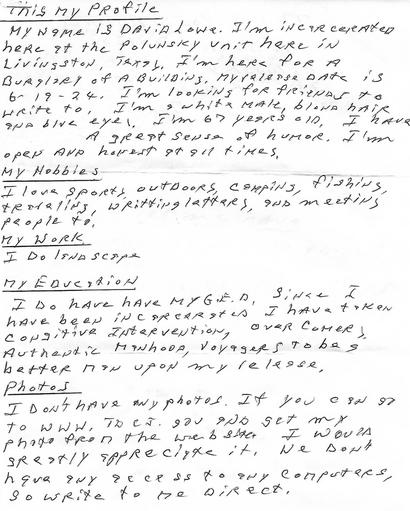 This My Profile
My name is David Lowe. I'm incercerated
here at the Polunsky unit here in
Livingston, Texas, I'm here for a
Burglery of A Building, My release Date is
6-19-24. I'm looking for friends to
write to, I'm a white male, blond hair
and blue eyes. I'm 67 years old, I have
A great sense of humor. I'm
open And honest at all times.
My Hobbies
I love sports, outdoors, camping, fishing,
traveling, writting latters, and meeting
people to.
My Work
I Do landscape
My Education
I Do have have My G.E.D. Since I
have been incercerated I have taken
Congitive Intervention, over comers,
Authentic Manhood, Voyagers to be a
better man upon my release,
Photos
I Don't have any photos. If you can go
to www. TDCJ. gov and get my
photo from the website I would
greatly appreciate it. We Don't
have any access to any computers,
So write to me Direct.